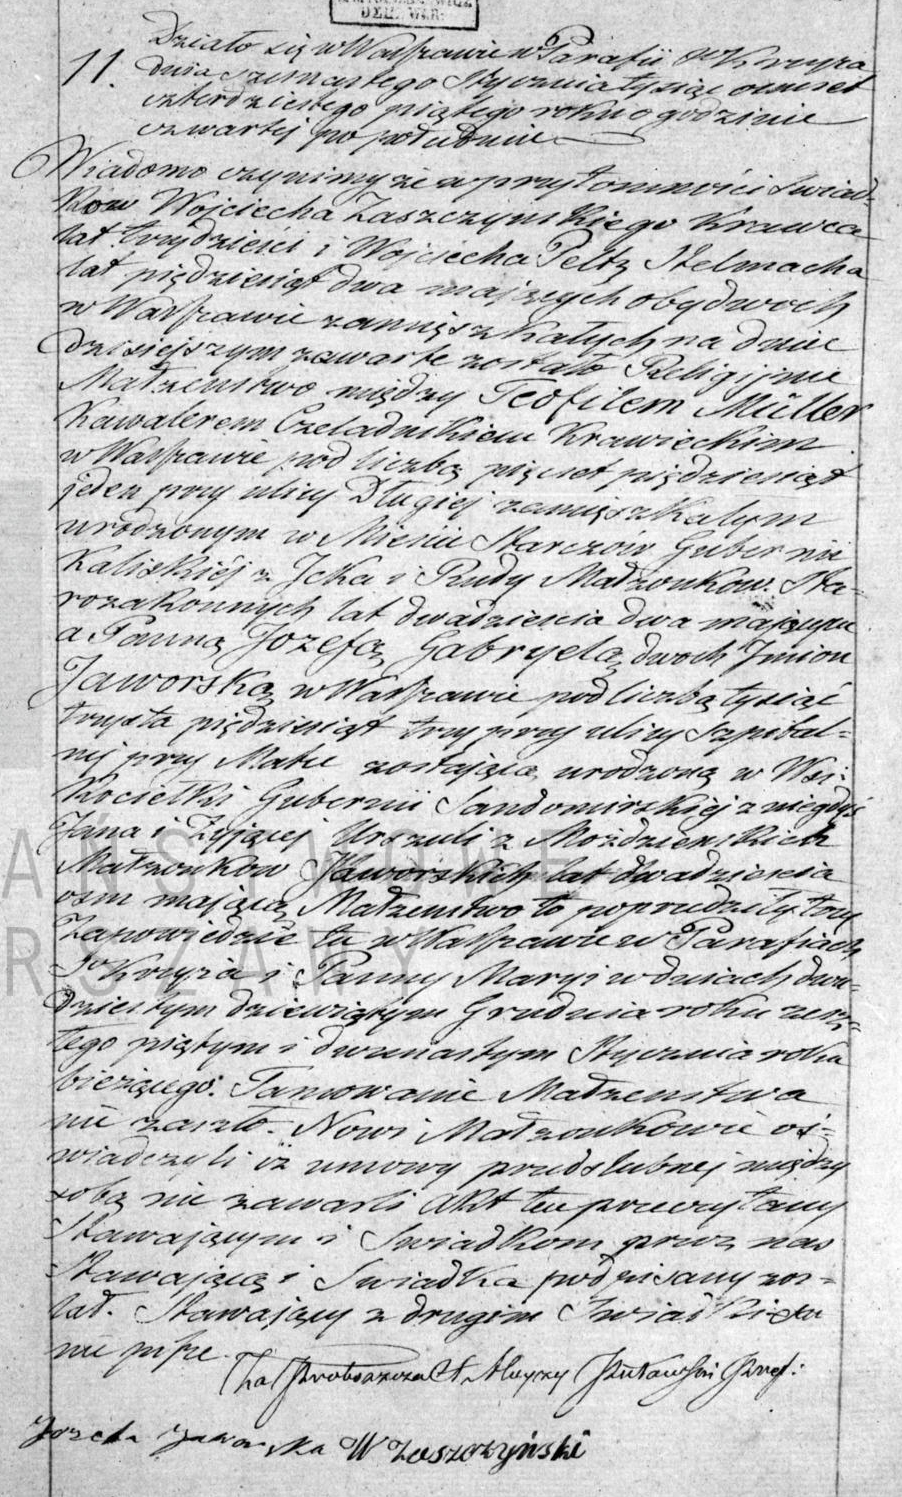 Działo się w Warszawie w Parafii Sgo Krzyża
11. dnia szesnastego Stycznia tysiąc ośmset
czterdziestego piątego roku o godzinie
czwartej po południu
Wiadomo czynimy że w przytomności Świad-
ków Wojciecha Zaszczyńskiego Krawca
lat trzydzieści i Wojciecha Peltz Stelmacha
lat pięćdziesiąt dwa mających obydwóch
w Warszawie zamięszkałych na dniu
dzisiejszym zawarte zostało Religijne
Małżeństwo między Teofilem Müller
Kawalerem Czeladnikiem Krawieckim
w Warszawie pod liczbą pięćset pięćdziesiąt
jeden przy ulicy Długiej zamięszkałym
urodzonym w Mieście Gubernii
Kaliskiéj z Icka i Rudy Małżonków Sta-
rozakonnych lat dwadzieścia dwa mającym
a Panną Józefą Gabryelą dwóch Imion
Jaworską w Warszawie pod liczbą tysiąc
trzysta pięćdziesiąt trzy przy ulicy Szpital-
nej przy Matce zostającą urodzoną w Wsi
Kociełki Gubernii Sandomirskiéj z niegdyś
Jana i Żyjącej Urszuli z Moździeńskich
Małżonków Jaworskich lat dwadzieścia
ośm mającą Małżeństwo to poprzedziły trzy
Zapowiedzie tu w Warszawie w Parafiach
Sgo Krzyża i Panny Maryi w dniach dwu-
dziestym dziewiątym Grudnia roku zesz-
łego piątym i dwunastym Stycznia roku
bieżącego. Tamowanie Małżeństwa
nie zaszło. Nowi Małżonkowie oś-
wiadczyli iż umowy przedślubnej między
sobą nie zawarli Akt ten przeczytany
Stawającym i Świadkom przez nas
Stawającą i Świadka podpisany zos-
tał. Stawający z drugim Świadkiem
nie pisze.
Za Proboszcza
Józefa Jaworska W Zaszczyński